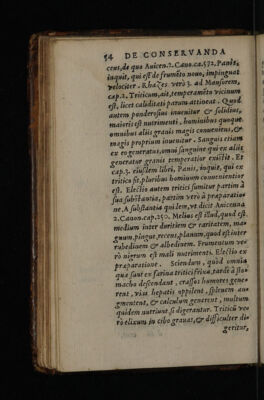 54 DE CONSERVANDA
ceus, de qua Auicen. 2. Cano. ca. 572. Panis,
inquit, qui est de frumẽto nouo, impinguat
velociter. Rhazes verò 3. ad Mansorem,
cap. 2. Triticum, ait, temperamẽto vicinum
est, licet caliditati parum attineat. Quod
autem ponderosius inuenitur & solidius,
maioris est nutrimenti, hominibus quoque
omnibus aliis granis magis conueniens, &
magis proprium inuenitur. Sanguis etiam
ex eo generatus, omni sanguine qui ex aliis
generatur granis temperatior existit. Et
cap. 3. eiusdem libri, Panis, inquit, qui ex
tritico fit, pluribus hominum conuenientior
est. Electio autem tritici sumitur partim à
sua substantia, partim verò à præparatio
ne. A substantia quidem, vt dicit Auicenna
2. Canon. cap. 250. Melius est illud, quod est
medium inter duritiem & raritatem, ma
gnum, pingue, recens, planum, quod est inter
rubedinem & albedinem. Frumentum ve
rò nigrum est mali nutrimenti. Electio ex
præparatione. Sciendum, quòd omnia
quæ sunt ex farina tritici frixa, tardè à sto
macho descendunt, crassos humores gene
rent, vias hepatis oppilent, splenem au
gmentent, & calculum generent, multum
quidem nutriunt si digerantur. Triticū ve
rò elixum in cibo grauat, & difficulter di
geritur,